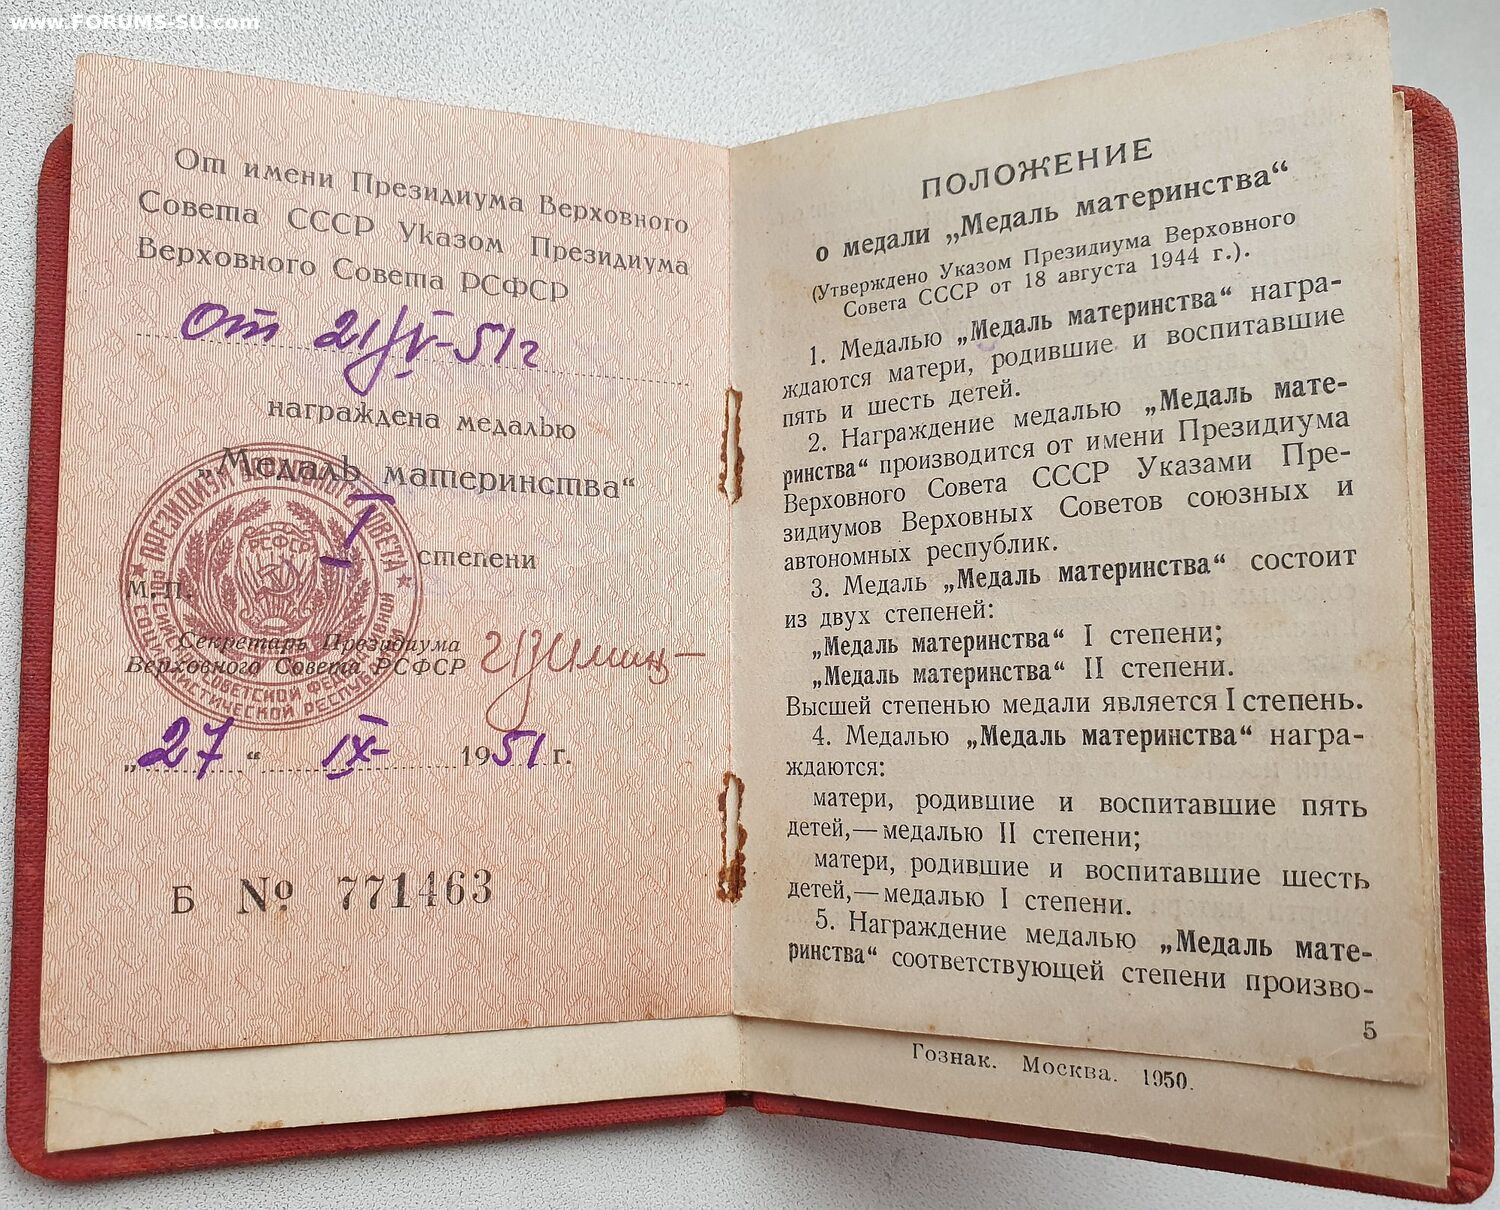 www.FORUMS-SU.com
От имени Президиума Верховного
Совета СССР Указом Президиума
Верховного Совета РСФСР
от 21/V-51г
награждена медалью
„Медаль материнства“
I степени
ПРЕЗИДИУМ ВЕРХОВНОГО СОВЕТА
РСФСР
М.П.
Секретарь Президиума
Верховного Совета РСФСР
„27“ IX- 1951 г.
Б № 771463
ПОЛОЖЕНИЕ
о медали „Медаль материнства“
(Утверждено Указом Президиума Верховного
Совета СССР от 18 августа 1944 г.).
1. Медалью „Медаль материнства“ награ-
ждаются матери, родившие и воспитавшие
пять и шесть детей.
2. Награждение медалью „Медаль мате-
ринства“ производится от имени Президиума
Верховного Совета СССР Указами Пре-
зидиумов Верховных Советов союзных и
автономных республик.
3. Медаль „Медаль материнства“ состоит
из двух степеней:
„Медаль материнства“ I степени;
„Медаль материнства“ II степени.
Высшей степенью медали является I степень.
4. Медалью „Медаль материнства“ награ-
ждаются:
матери, родившие и воспитавшие пять
детей,—медалью II степени;
матери, родившие и воспитавшие шесть
детей,—медалью I степени.
5. Награждение медалью „Медаль мате-
ринства“ соответствующей степени произво-
5
Гознак. Москва. 1950.